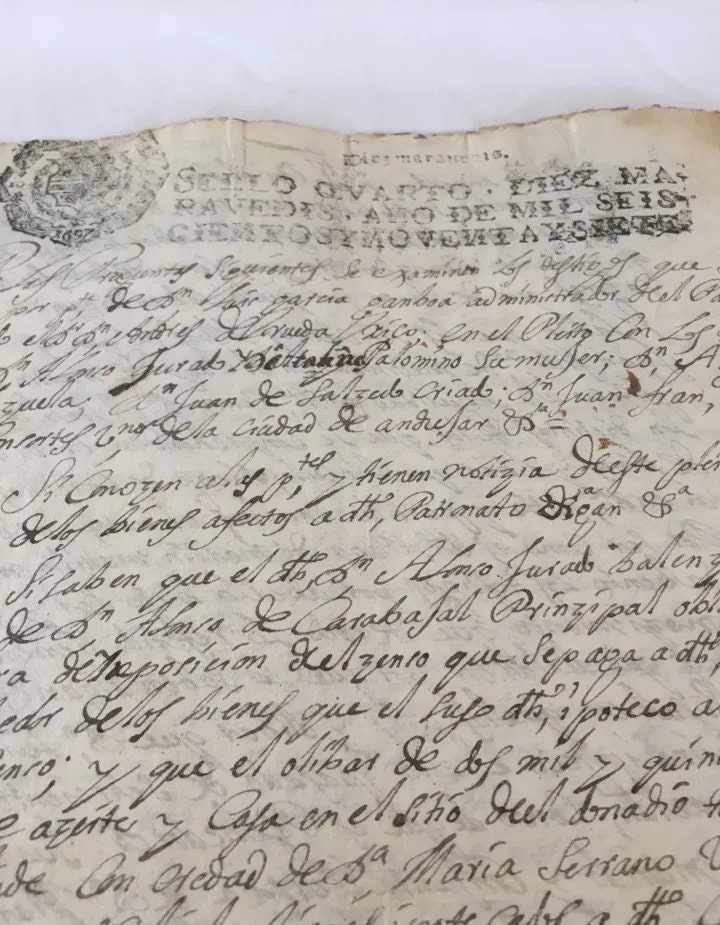 Diez maravedis.
SELLO QVARTO, DIEZ MA-
RAVEDIS, AÑO DE MIL SEIS-
CIENTOS Y NOVENTA Y SIETE
1697
Preguntas siguientes se examinen los testigos que
por pte de Dn Luis garcia ganboa administrador de el Pa
de Rueda Rico. en el Pleito Con los
Dn Alonso Jurado Palomino su muger; Dn A
zuela, Dn Juan de Salzedo Criado; Dn Juan fran,
Consortes vnos de la ciudad de andujar &a =
Si Conozen a las ptes y tienen notizia deste pleit
de los bienes afectos a dho, Patronato Digan &a
Si saben que el dho, Dn Alonso Jurado balenz
de Dn Alonso de Carabajal Prinzipal obli
ra de la posicion del zenso que se paga a dho,
edor de los bienes que el suso dho, ipoteco a
enso; y que el olibar de dos mil y quini
azeite y Casa en el sitio de el donadio
nde Con eredad de Da Maria Serrano